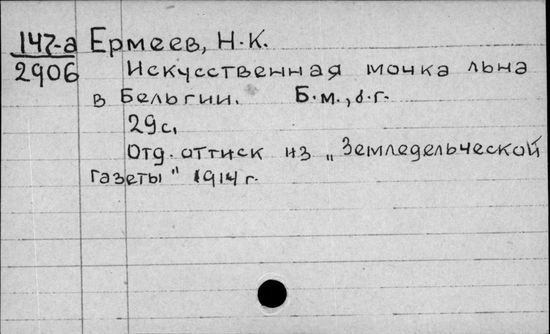 147-а Ермеев, Н.К.
2906 Искусственная мочка льна
в Бельгии. Б.м., б.г.
29 с.
Отд. оттиск из „Земледельческой
газеты" 1914 г.